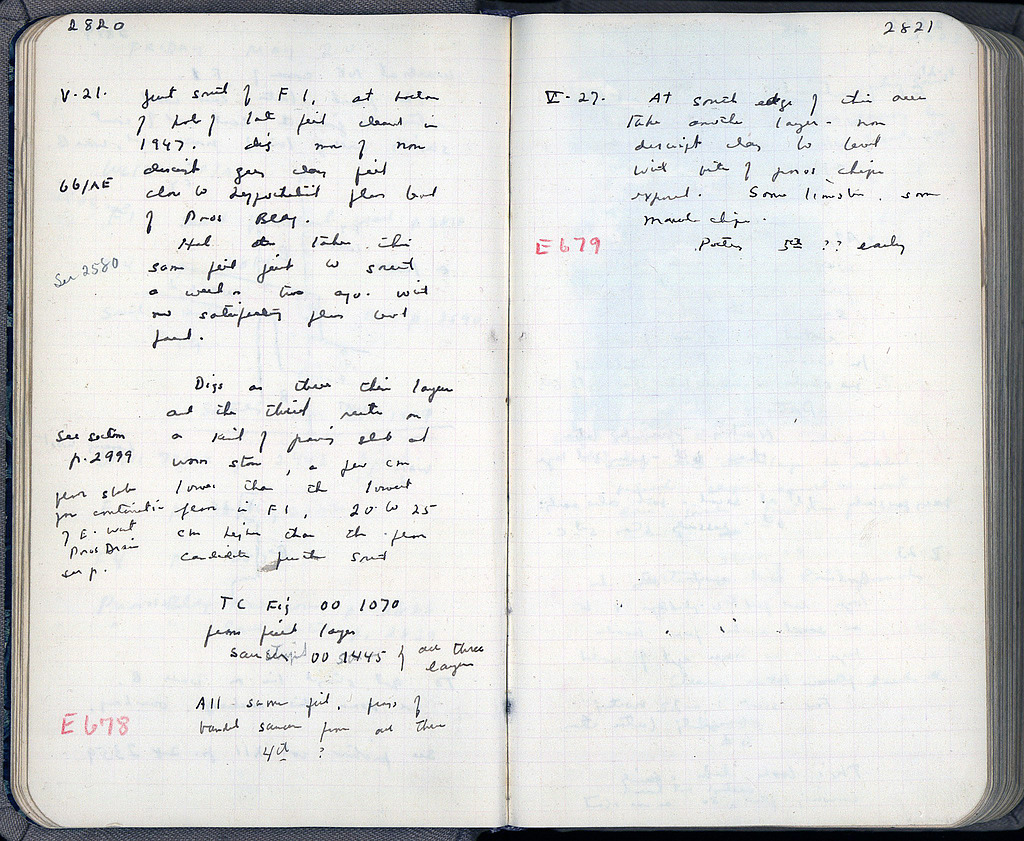 2820
V-21. Just south of F 1, at bottom
of late fill cleared in
1947. dig more of non
descript grey clay fill
66/AE
close to hypothetical floor level
of Poros Bldg.
Had taken this
See 2580
same fill just to south
a week or two ago. with
no satisfactory floor level
found.
Digs as three thin layers
and the third rests on
See section
p. 2999
a sort of paving slab of
worn stone, a few cm
lower than the lowest
floor in F 1, 20 to 25
cm higher than the floor
candidate further south
floor slab
for continuation
of E. wall
Poros Drain
see p.
TC Fig 00 1070
from first layer
00 1445 of all three
layers
E 678
All same fill, pieces of
banded saucer from all three
4th ?
2821
V-27. At south edge of this area
take another layer - non
descript clay to level
with bits of poros chips
exposed. Some limestone, some
marble chips.
E 679
Pottery 5th ?? early